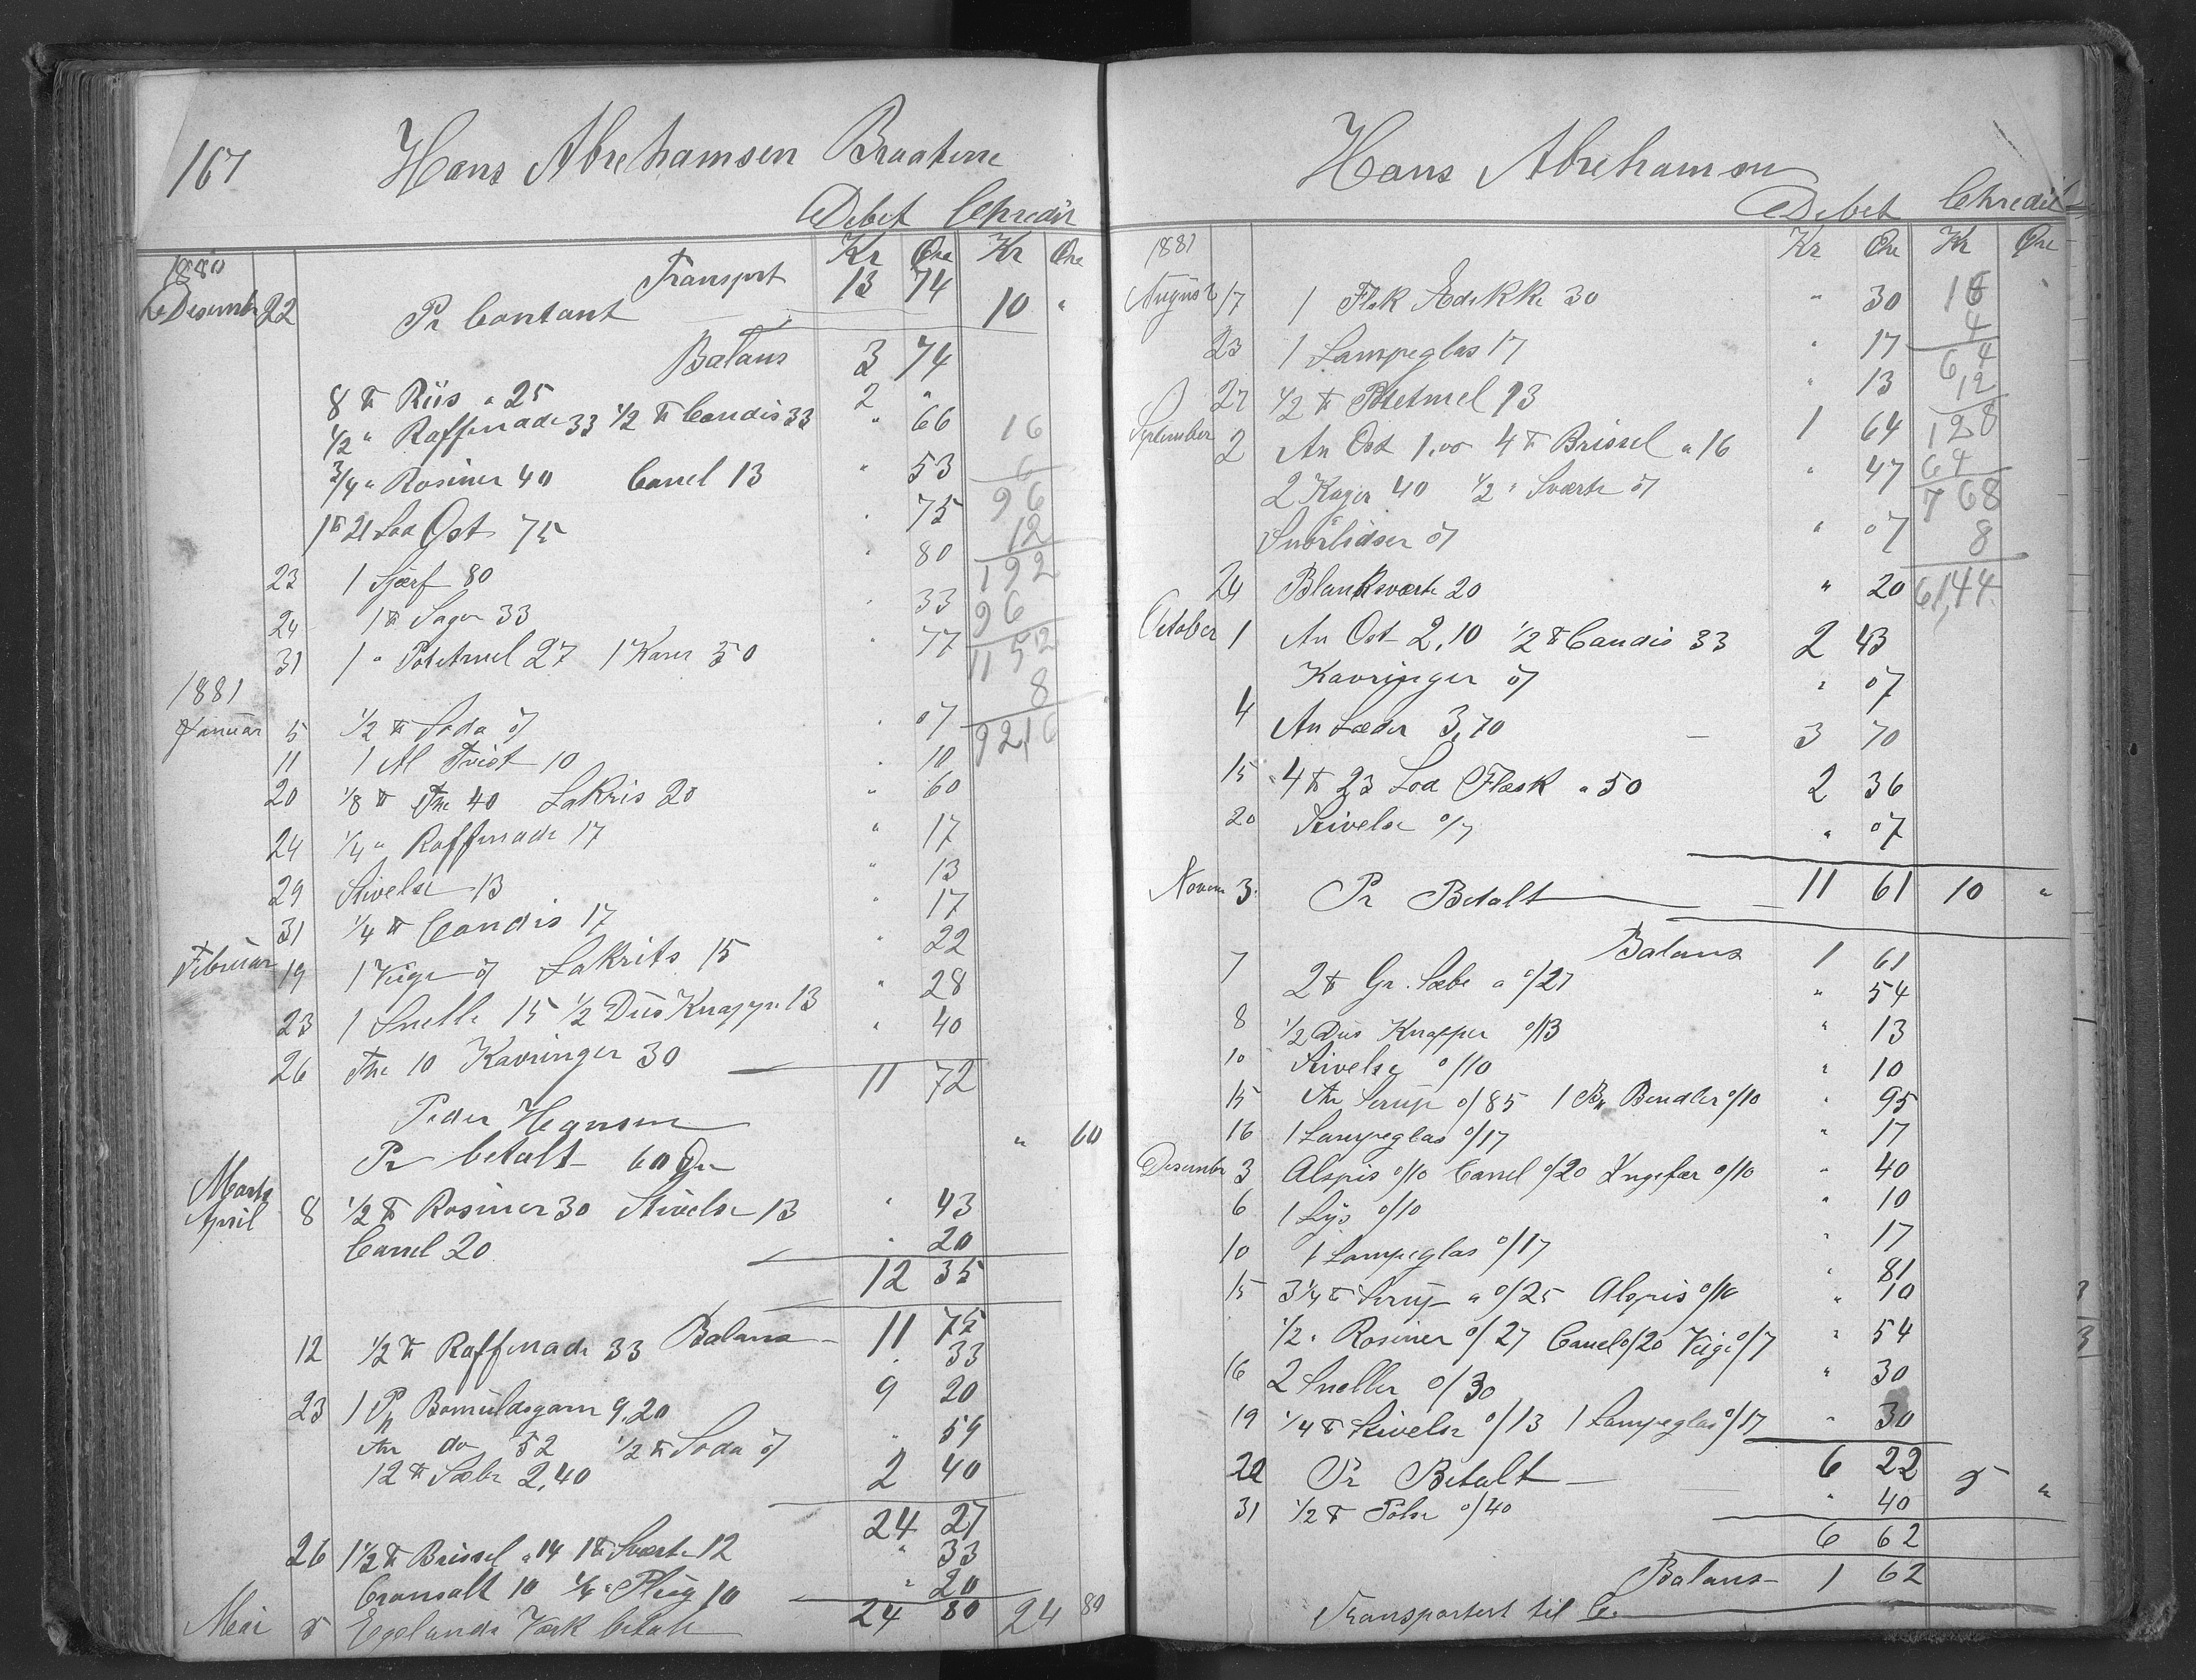 167
Hans Abrehamsen Braatene
Debet Chredit
Kr Øre Kr Øre
1880
Transport 13 74
Desember 22 Pr Contant 10 "
Balans 3 74
8 ℔ Riis a 25 2 "
1/2 " Raffinade 33 1/2 ℔ Candis 33 " 66
3/4 " Rosiner 40 Canel 13 " 53
1 ℔ 21 Lod Ost 75 " 75
23 1 Sjærf 80 " 80
24 1 ℔ Sago 33 " 33
31 1 " Potetmel 27 1 50 " 77
16
6
96
12
192
96
1152
8
9216
1881
Januar 5 1/2 ℔ Soda 07 " 07
11 1 Al Tvist 10 " 10
20 1/8 ℔ The 40 Lakris 20 " 60
24 1/4 " Raffinade 17 " 17
29 Stivelse 13 " 13
31 1/4 ℔ Candis 17 " 17
Februar 19 1 Væge 07 Lakrits 15 " 22
23 1 Snelle 15 1/2 Dus Knapper 13 " 28
26 The 10 Kavringer 30 " 40
11 72
Peder Hegnsen
Pr betalt 60 Øre " 60
Marts
April 8 1/2 ℔ Rosiner 30 Stivelse 13 " 43
Canel 20 " 20
12 35
Balans 11 75
12 1/2 ℔ Raffinade 33 " 33
23 1 Pk Bomuldsgarn 9,20 9 20
An do 52 1/2 ℔ Soda 07 " 59
12 ℔ Sæbe 2,40 2 40
24 27
26 1 1/2 ℔ Brissel a 14 1 ℔ Sværte 12 " 33
Cromsalt 10 Plug 10 " 20
24 80
Mai 5 Egelands Værk betalt 24 80
Hans Abrehamsen
Debet Chredit
Kr Øre Kr Øre
1881
August 17 1 Flsk Ædikke 30 " 30
23 1 Lampeglas 17 " 17
27 1/2 ℔ Potetmel 13 " 13
September 2 An Ost 1,00 4 ℔ Brissel a 16 1 64
2 Kager 40 1/2 " Sværte 07 " 47
Snörlidser 07 " 07
24 Blanksværte 20 " 20
16
4
64
12
128
64
768
8
61,44
October 1 An Ost 2,10 1/2 ℔ Candis 33 2 43
Kavringer 07 " 07
4 An Læder 3,70 3 70
15 4 ℔ 23 Lod Flæsk a 50 2 36
20 Stivelse 0/7 " 07
Novem 3 Pr Betalt 11 61 10 "
Balans 1 61
7 2 ℔ Gr. Sæbe a 0/27 " 54
8 1/2 Dus Knapper 0/13 " 13
10 Stivelse 0/10 " 10
15 An Serup 0/85 1 Bk Bendler 0/10 " 95
16 1 Lampeglas 0/17 " 17
Desember 3 Alspis 0/10 Canel 0/20 Ingefær 0/10 " 40
6 1 Lys 0/10 " 10
10 1 Lampeglas 0/17 " 17
15 3 1/4 ℔ Serup a 0/25 Alspis 0/10 " 81
" 10
1/2 " Rosiner 0/27 Canel 0/20 Væge 0/7 " 54
16 2 Sneller 0/30 " 30
19 1/4 ℔ Stivelse 0/13 1 Lampeglas 0/17 " 30
22 Pr Betalt 6 22 5 "
31 1/2 ℔ Pølse 0/40 " 40
6 62
Balans 1 62
Transportert til C.